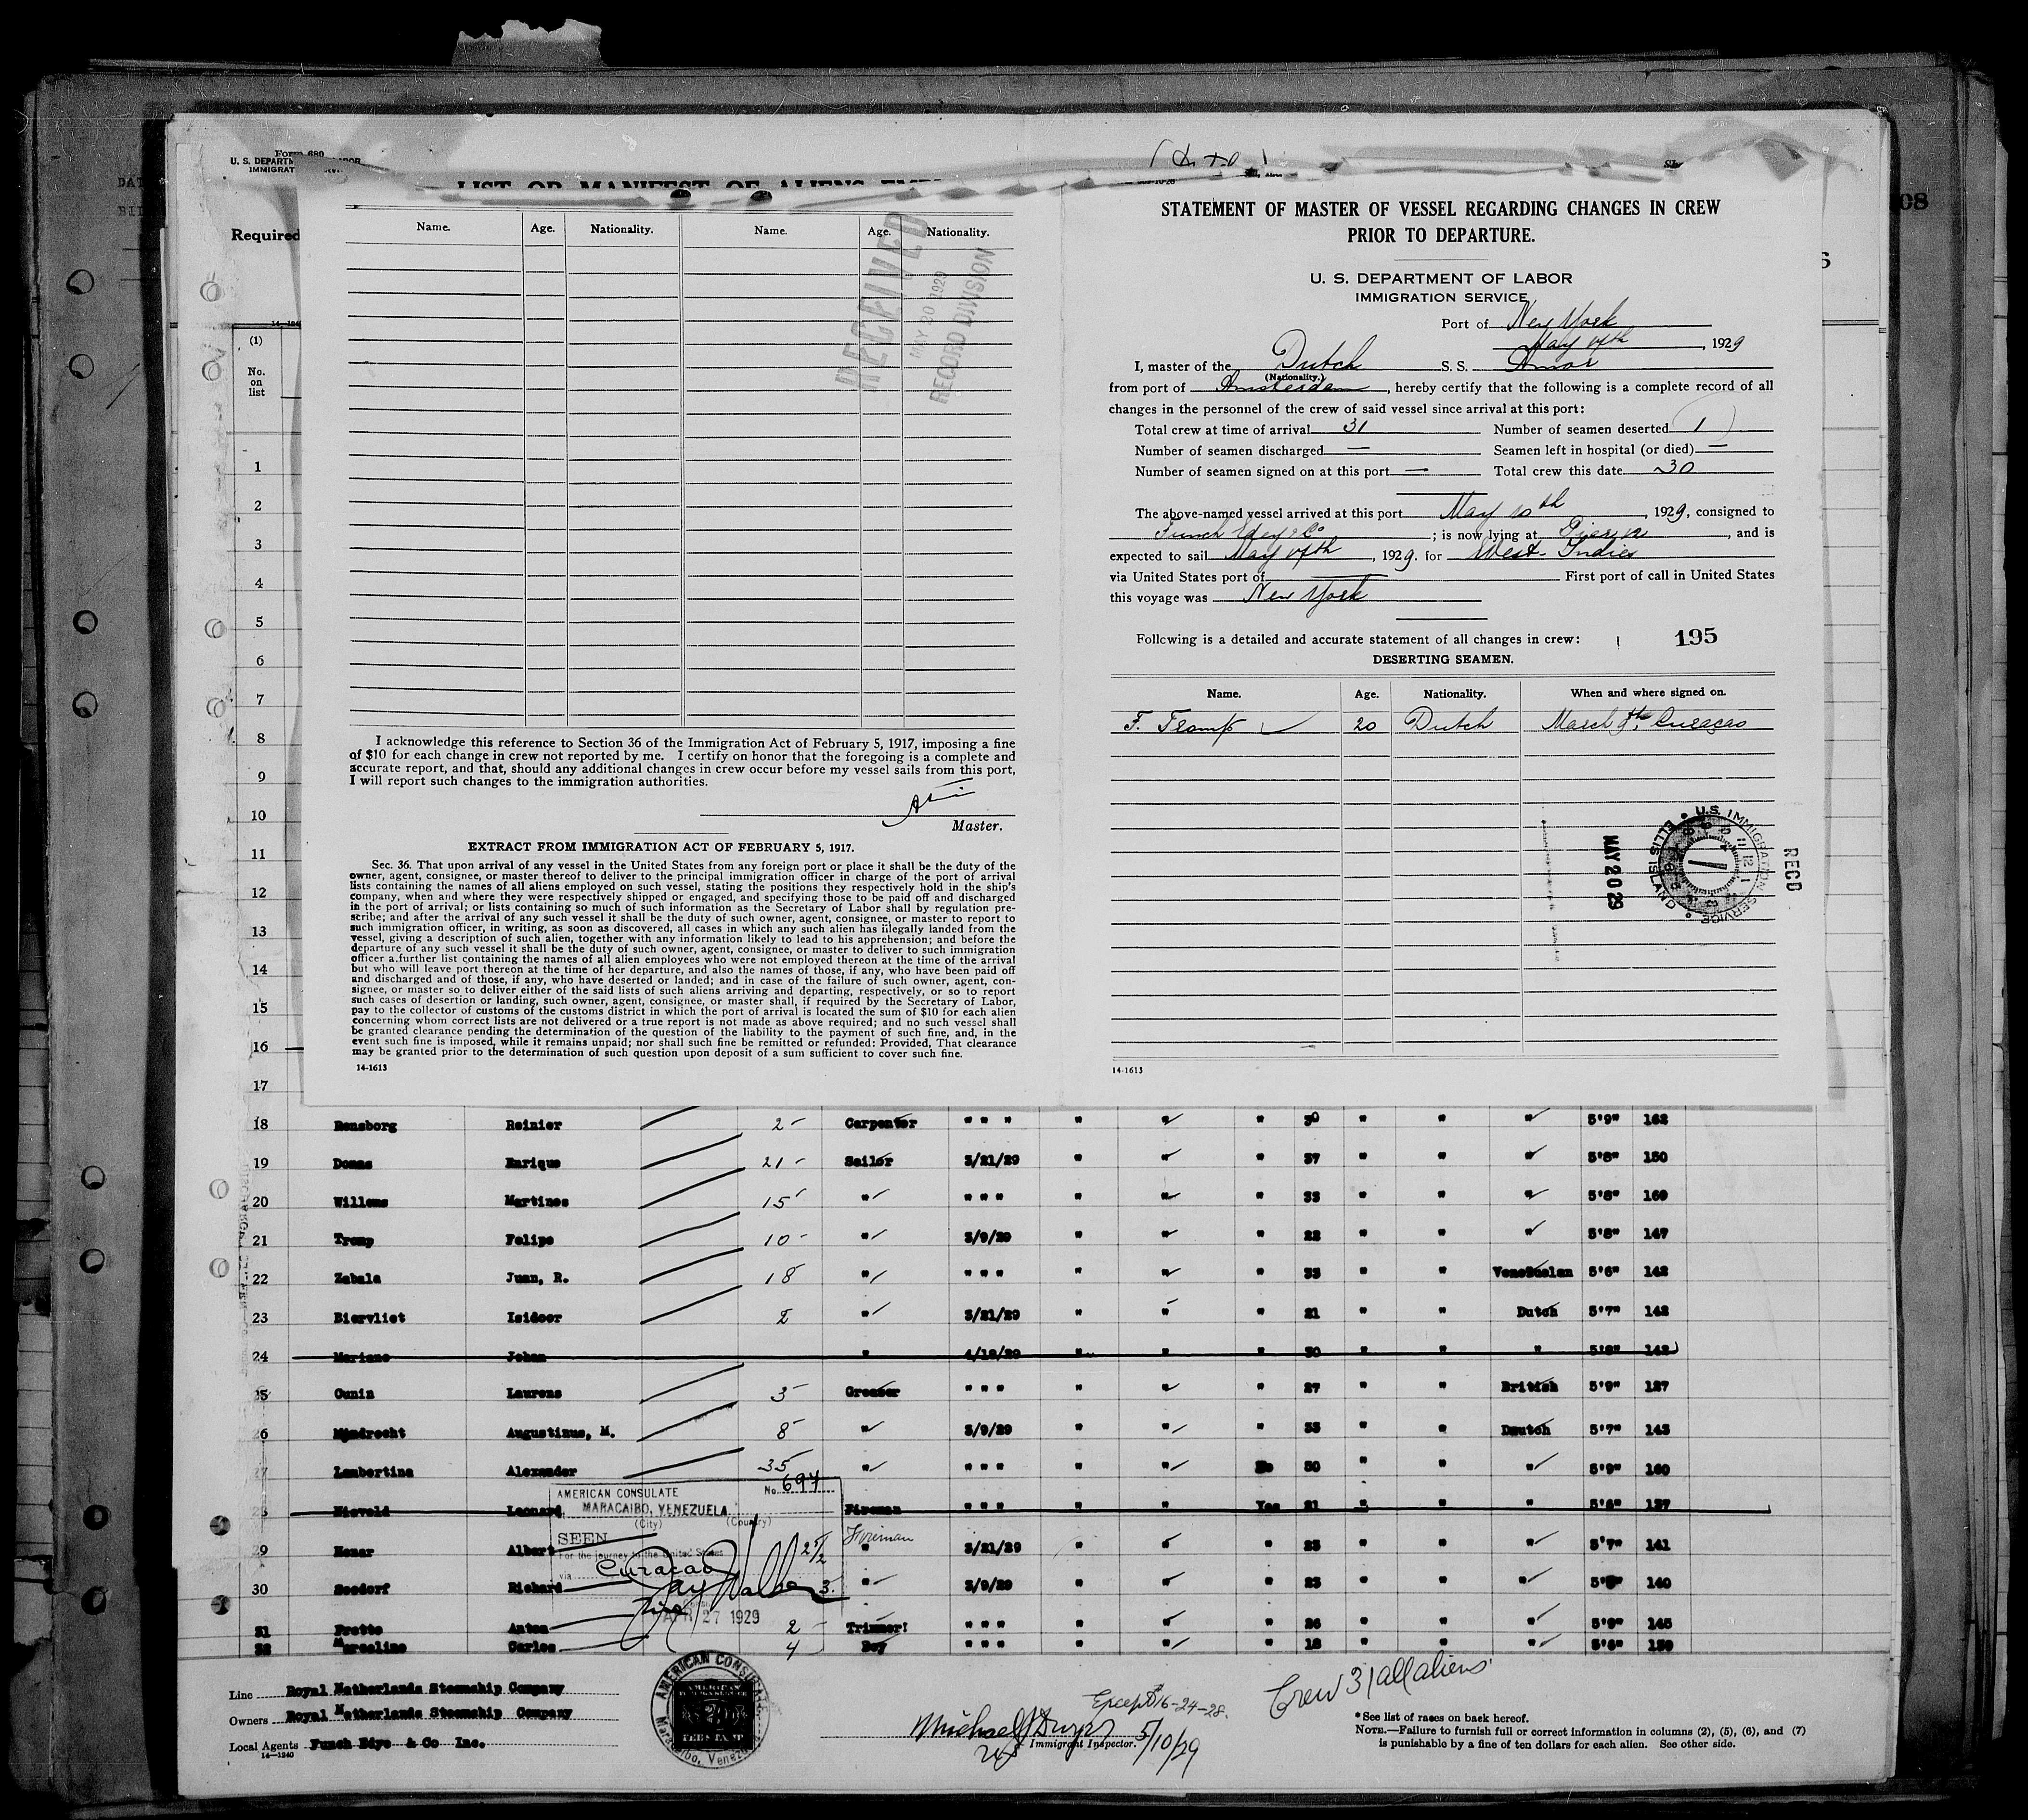 Form 680
U. S. DEPARTM
IMMIGRAT
LIST OR MANIFEST OF ALIENS EMP
Required
(1)
No.
on
list
1
2
3
4
5
6
7
8
9
10
11
12
13
14
15
16
17
Name. Age. Nationality. Name. Age. Nationality.
RECEIVED
MAY 20 1929
RECORD DIVISION
I acknowledge this reference to Section 36 of the Immigration Act of February 5, 1917, imposing a fine
of $10 for each change in crew not reported by me. I certify on honor that the foregoing is a complete and
accurate report, and that, should any additional changes in crew occur before my vessel sails from this port,
I will report such changes to the immigration authorities.
Master.
EXTRACT FROM IMMIGRATION ACT OF FEBRUARY 5, 1917.
Sec. 36. That upon arrival of any vessel in the United States from any foreign port or place it shall be the duty of the
owner, agent, consignee, or master thereof to deliver to the principal immigration officer in charge of the port of arrival
lists containing the names of all aliens employed on such vessel, stating the positions they respectively hold in the ship's
company, when and where they were respectively shipped or engaged, and specifying those to be paid off and discharged
in the port of arrival; or lists containing so much of such information as the Secretary of Labor shall by regulation pre-
scribe; and after the arrival of any such vessel it shall be the duty of such owner, agent, consignee, or master to report to
such immigration officer, in writing, as soon as discovered, all cases in which any such alien has illegally landed from the
vessel, giving a description of such alien, together with any information likely to lead to his apprehension; and before the
departure of any such vessel it shall be the duty of such owner, agent, consignee, or master to deliver to such immigration
officer a further list containing the names of all alien employees who were not employed thereon at the time of the arrival
but who will leave port thereon at the time of her departure, and also the names of those, if any, who have been paid off
and discharged and of those, if any, who have deserted or landed; and in case of the failure of such owner, agent, con-
signee, or master so to deliver either of the said lists of such aliens arriving and departing, respectively, or so to report
such cases of desertion or landing, such owner, agent, consignee, or master shall, if required by the Secretary of Labor,
pay to the collector of customs of the customs district in which the port of arrival is located the sum of $10 for each alien
concerning whom correct lists are not delivered or a true report is not made as above required; and no such vessel shall
be granted clearance pending the determination of the question of the liability to the payment of such fine, and, in the
event such fine is imposed, while it remains unpaid; nor shall such fine be remitted or refunded: Provided, That clearance
may be granted prior to the determination of such question upon deposit of a sum sufficient to cover such fine.
14-1613
STATEMENT OF MASTER OF VESSEL REGARDING CHANGES IN CREW
PRIOR TO DEPARTURE.
U. S. DEPARTMENT OF LABOR
IMMIGRATION SERVICE
Port of New York
May 17th, 1929
I, master of the Dutch S. S. Amor
(Nationality.)
from port of Amsterdam, hereby certify that the following is a complete record of all
changes in the personnel of the crew of said vessel since arrival at this port:
Total crew at time of arrival 31 Number of seamen deserted 1
Number of seamen discharged — Seamen left in hospital (or died) —
Number of seamen signed on at this port — Total crew this date 30
The above-named vessel arrived at this port May 10th, 1929, consigned to
Funch Edye & Co; is now lying at Pier, and is
expected to sail May 17th, 1929. for West-Indies
via United States port of First port of call in United States
this voyage was New York
Following is a detailed and accurate statement of all changes in crew: 195
DESERTING SEAMEN.
Name. Age. Nationality. When and where signed on.
F. Tromp 20 Dutch March 9th Curaçao
U.S. IMMIGRATION SERVICE ELLIS ISLAND
MAY 20 29
RECD
14-1613
18 Rensborg Reinier 2 Carpenter " " " " " " 30 " " " 5'9" 162
19 Domas Enrique 21 Sailor 3/21/29 " " " 37 " " " 5'8" 150
20 Willems Martines 15 " " " " " " " 33 " " " 5'8" 169
21 Tromp Felipe 10 " 3/9/29 " " " 22 " " " 5'8" 147
22 Zabala Juan, R. 18 " " " " " " " 33 " " Venezuelan 5'6" 142
23 Biervliet Isidoor 2 " 3/21/29 " " " 21 " " Dutch 5'7" 142
24 Mariano Johan " 4/18/29 " " " 30 " " " 5'8" 142
25 Cunin Laurens 3 Greaser " " " " " " 27 " " British 5'9" 127
26 Mandrecht Augustinus, M. 8 " 3/9/29 " " " 33 " " Deutch 5'7" 143
27 Lambertina Alexander 35 " " " " " " No 30 " " " 5'9" 160
28 Nieveld Leonard Fireman " " " " " Yes 21 " " " 5'6" 137
29 Henar Albert 2 1/2 Fireman " 3/21/29 " " " 23 " " " 5'7" 141
30 Seedorf Richard 3. " 3/9/29 " " " 23 " " " 140
31 Prette Anton 2 Trimmer! " " " " " " 26 " " " 5'9" 145
32 Marceline Carlos 4 Boy " " " " " " 18 " " " 5'6" 139
AMERICAN CONSULATE No. 697
MARACAIBO, VENEZUELA
(City) (Country)
SEEN
For the journey to the United States
via Curacao
APR 27 1929
AMERICAN CONSULATE Maracaibo, Venezuela
Line Royal Netherlands Steamship Company
Owners Royal Netherlands Steamship Company
Local Agents Funch Edye & Co Inc.
14—1240
Except 16-24-28.
Crew 31 all aliens
Immigrant Inspector. 5/10/29
*See list of races on back hereof.
NOTE.—Failure to furnish full or correct information in columns (2), (5), (6), and (7)
is punishable by a fine of ten dollars for each alien. See other side.